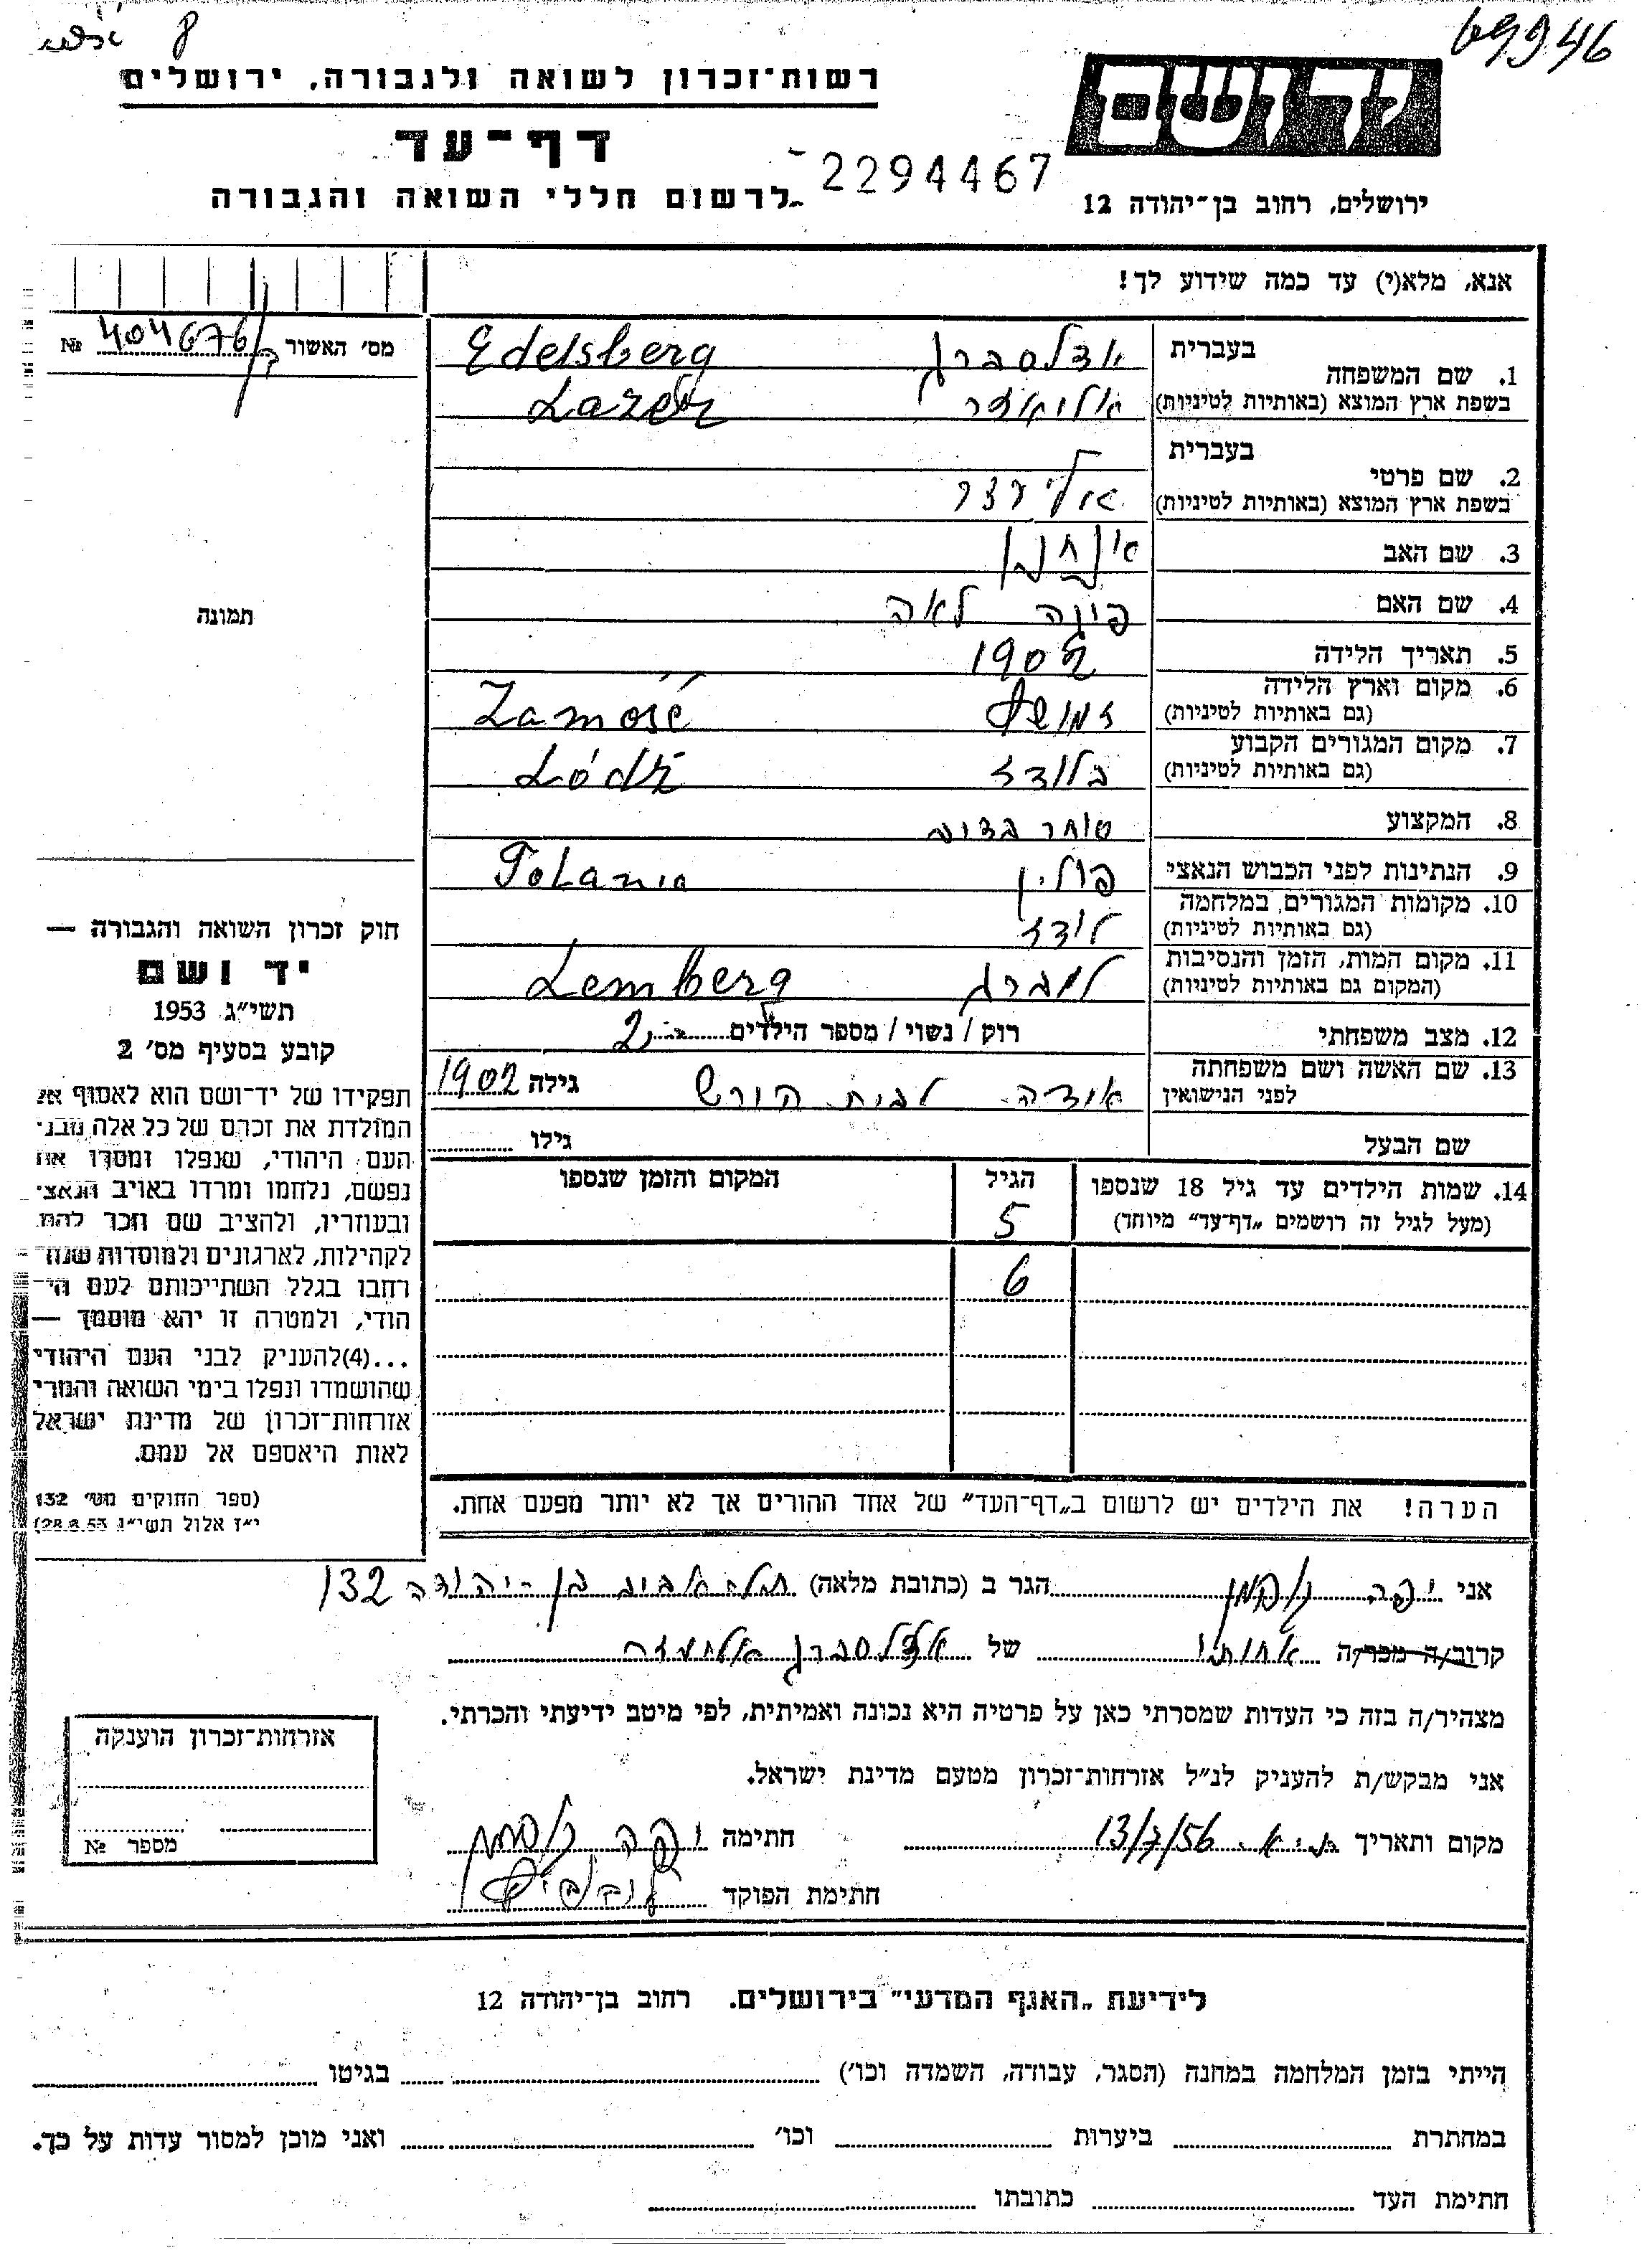 8
69946
ידושם
רשות־זכרון לשואה ולגבורה, ירושלים
דף־עד
לרשום חללי השואה והגבורה
2294467
ירושלים, רחוב בן־יהודה 12
אנא, מלא(י) עד כמה שידוע לך!
מס' האשור 404676 №
בעברית
1. שם המשפחה אדלסברג Edelsberg
בשפת ארץ המוצא (באותיות לטיניות) Lazer
בעברית
2. שם פרטי
בשפת ארץ המוצא (באותיות לטיניות) אליעזר
3. שם האב
4. שם האם פיגה לאה
5. תאריך הלידה 1902
6. מקום וארץ הלידה Zamość
(גם באותיות לטיניות)
7. מקום המגורים הקבוע בלודז Łódź
(גם באותיות לטיניות)
8. המקצוע סוחר
9. הנתינות לפני הכבוש הנאצי פולין Polania
10. מקומות המגורים במלחמה לודז
(גם באותיות לטיניות)
11. מקום המות, הזמן והנסיבות למברג Lemberg
(המקום גם באותיות לטיניות)
12. מצב משפחתי רוק / נשוי / מספר הילדים 2
13. שם האשה ושם משפחתה לבית הירש גילה 1902
לפני הנישואין
שם הבעל גילו
14. שמות הילדים עד גיל 18 שנספו הגיל המקום והזמן שנספו
(מעל לגיל זה רושמים „דף־עד" מיוחד) 5
6
הערה! את הילדים יש לרשום ב„דף־העד" של אחד ההורים אך לא יותר מפעם אחת.
תמונה
חוק זכרון השואה והגבורה —
יד ושם
תשי"ג 1953
קובע בסעיף מס' 2
תפקידו של יד־ושם הוא לאסוף אל
המולדת את זכרם של כל אלה מבני
העם היהודי, שנפלו ומסרו את
נפשם, נלחמו ומרדו באויב הנאצי
ובעוזריו, ולהציב שם וזכר להם,
לקהילות, לארגונים ולמוסדות שנח־
רחבו בגלל השתייכותם לעם הי־
הודי, ולמטרה זו יהא מוסמך —
...(4) להעניק לבני העם היהודי
שהושמדו ונפלו בימי השואה והמרי
אזרחות־זכרון של מדינת ישראל
לאות היאספם אל עמם.
(ספר החוקים מס' 132
י"ז אלול תשי"ג 28.8.53)
אני יפה הגר ב (כתובת מלאה) תל אביב בן יהודה 132
קרוב/ה מכר/ה אחותו של אדלסברג
מצהיר/ה בזה כי העדות שמסרתי כאן על פרטיה היא נכונה ואמיתית, לפי מיטב ידיעתי והכרתי.
אני מבקש/ת להעניק לנ"ל אזרחות־זכרון מטעם מדינת ישראל.
מקום ותאריך ת"א 13/7/56 חתימה יפה
חתימת הפוקד
אזרחות־זכרון הוענקה
מספר №
לידיעת „האגף המדעי" בירושלים. רחוב בן־יהודה 12
הייתי בזמן המלחמה במחנה (הסגר, עבודה, השמדה וכו') בגיטו
במחתרת ביערות וכו' ואני מוכן למסור עדות על כך.
חתימת העד כתובתו